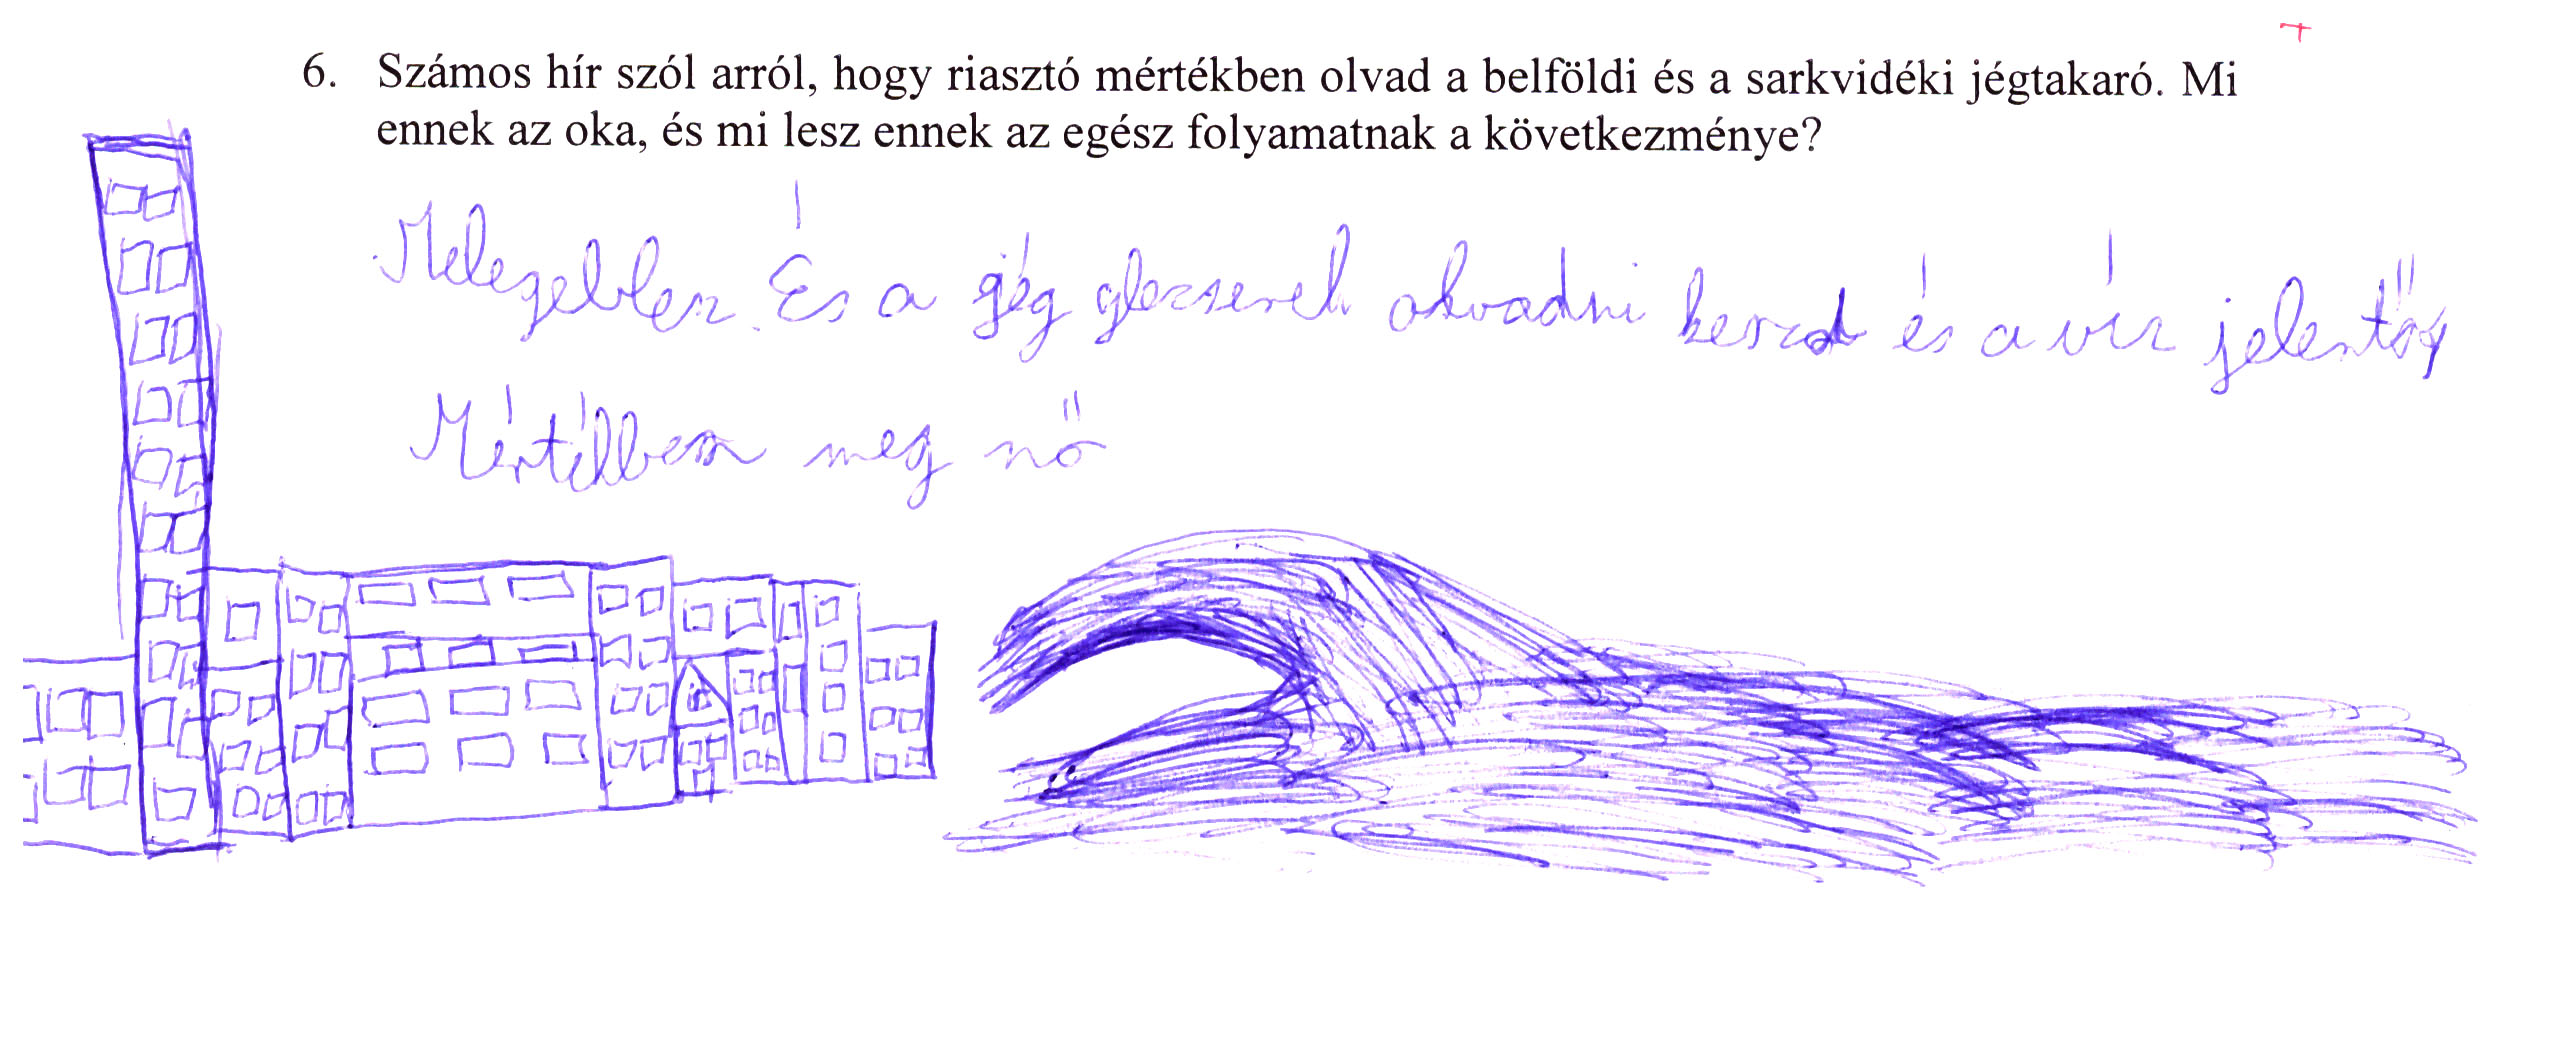 6. Számos hír szól arról, hogy riasztó mértékben olvad a belföldi és a sarkvidéki jégtakaró. Mi
ennek az oka, és mi lesz ennek az egész folyamatnak a következménye?
Melegebb lesz. És a jég glecserek olvadni kezd és a víz jelentős
Mértékben meg nő